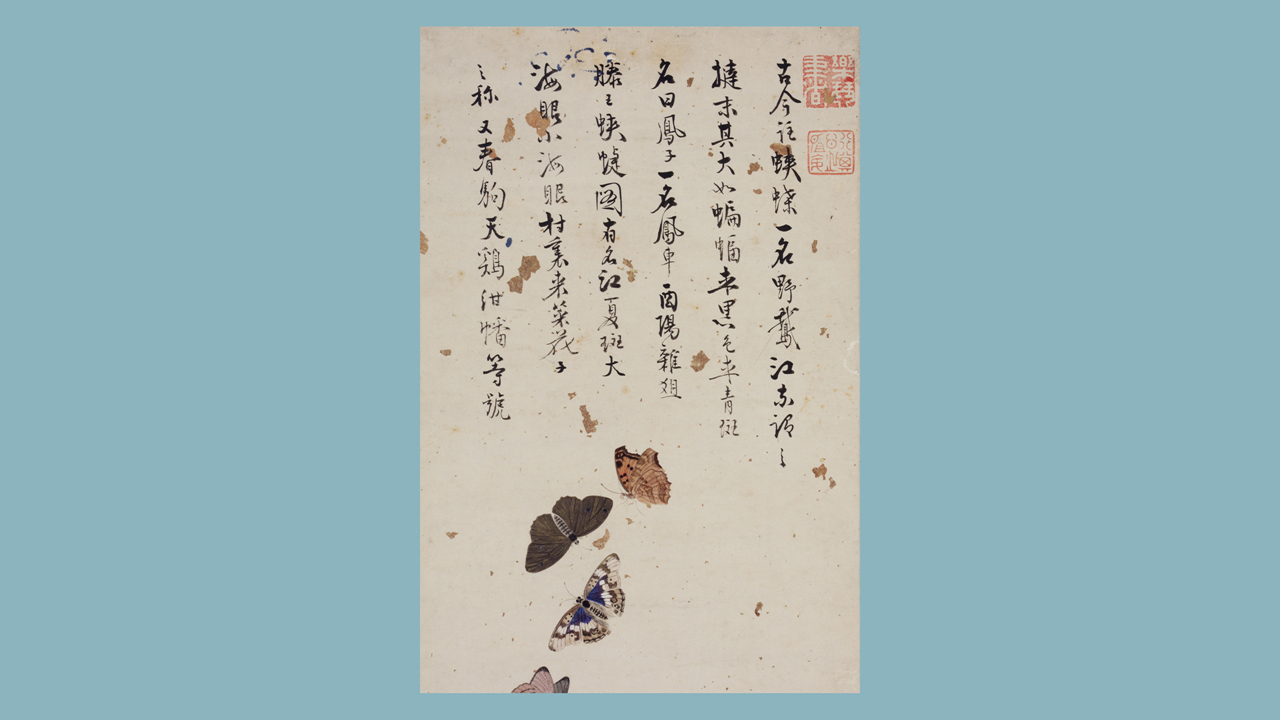 古今註蛺蝶一名野鵞江東謂之
撻末其大如蝙蝠黑色青斑
名曰鳳子一名鳳車酉陽雜俎
滕王蛺蜨圖有名江夏斑大
海眼小海眼村裏来菜花子
之称又春駒天鷄紺幡等號